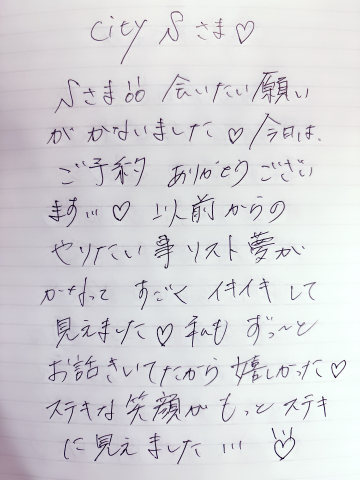 City Sさま♡
Sさま!! 会いたい願い
がかないました♡今日は、
ご予約 ありがとうござい
ます...♡ 以前からの
やりたい事リスト夢が
かなって すごく イキイキして
見えました♡私も ずっ〜と
お話きいてたから 嬉しかった♡
ステキな笑顔が もっとステキ
に見えました...♡